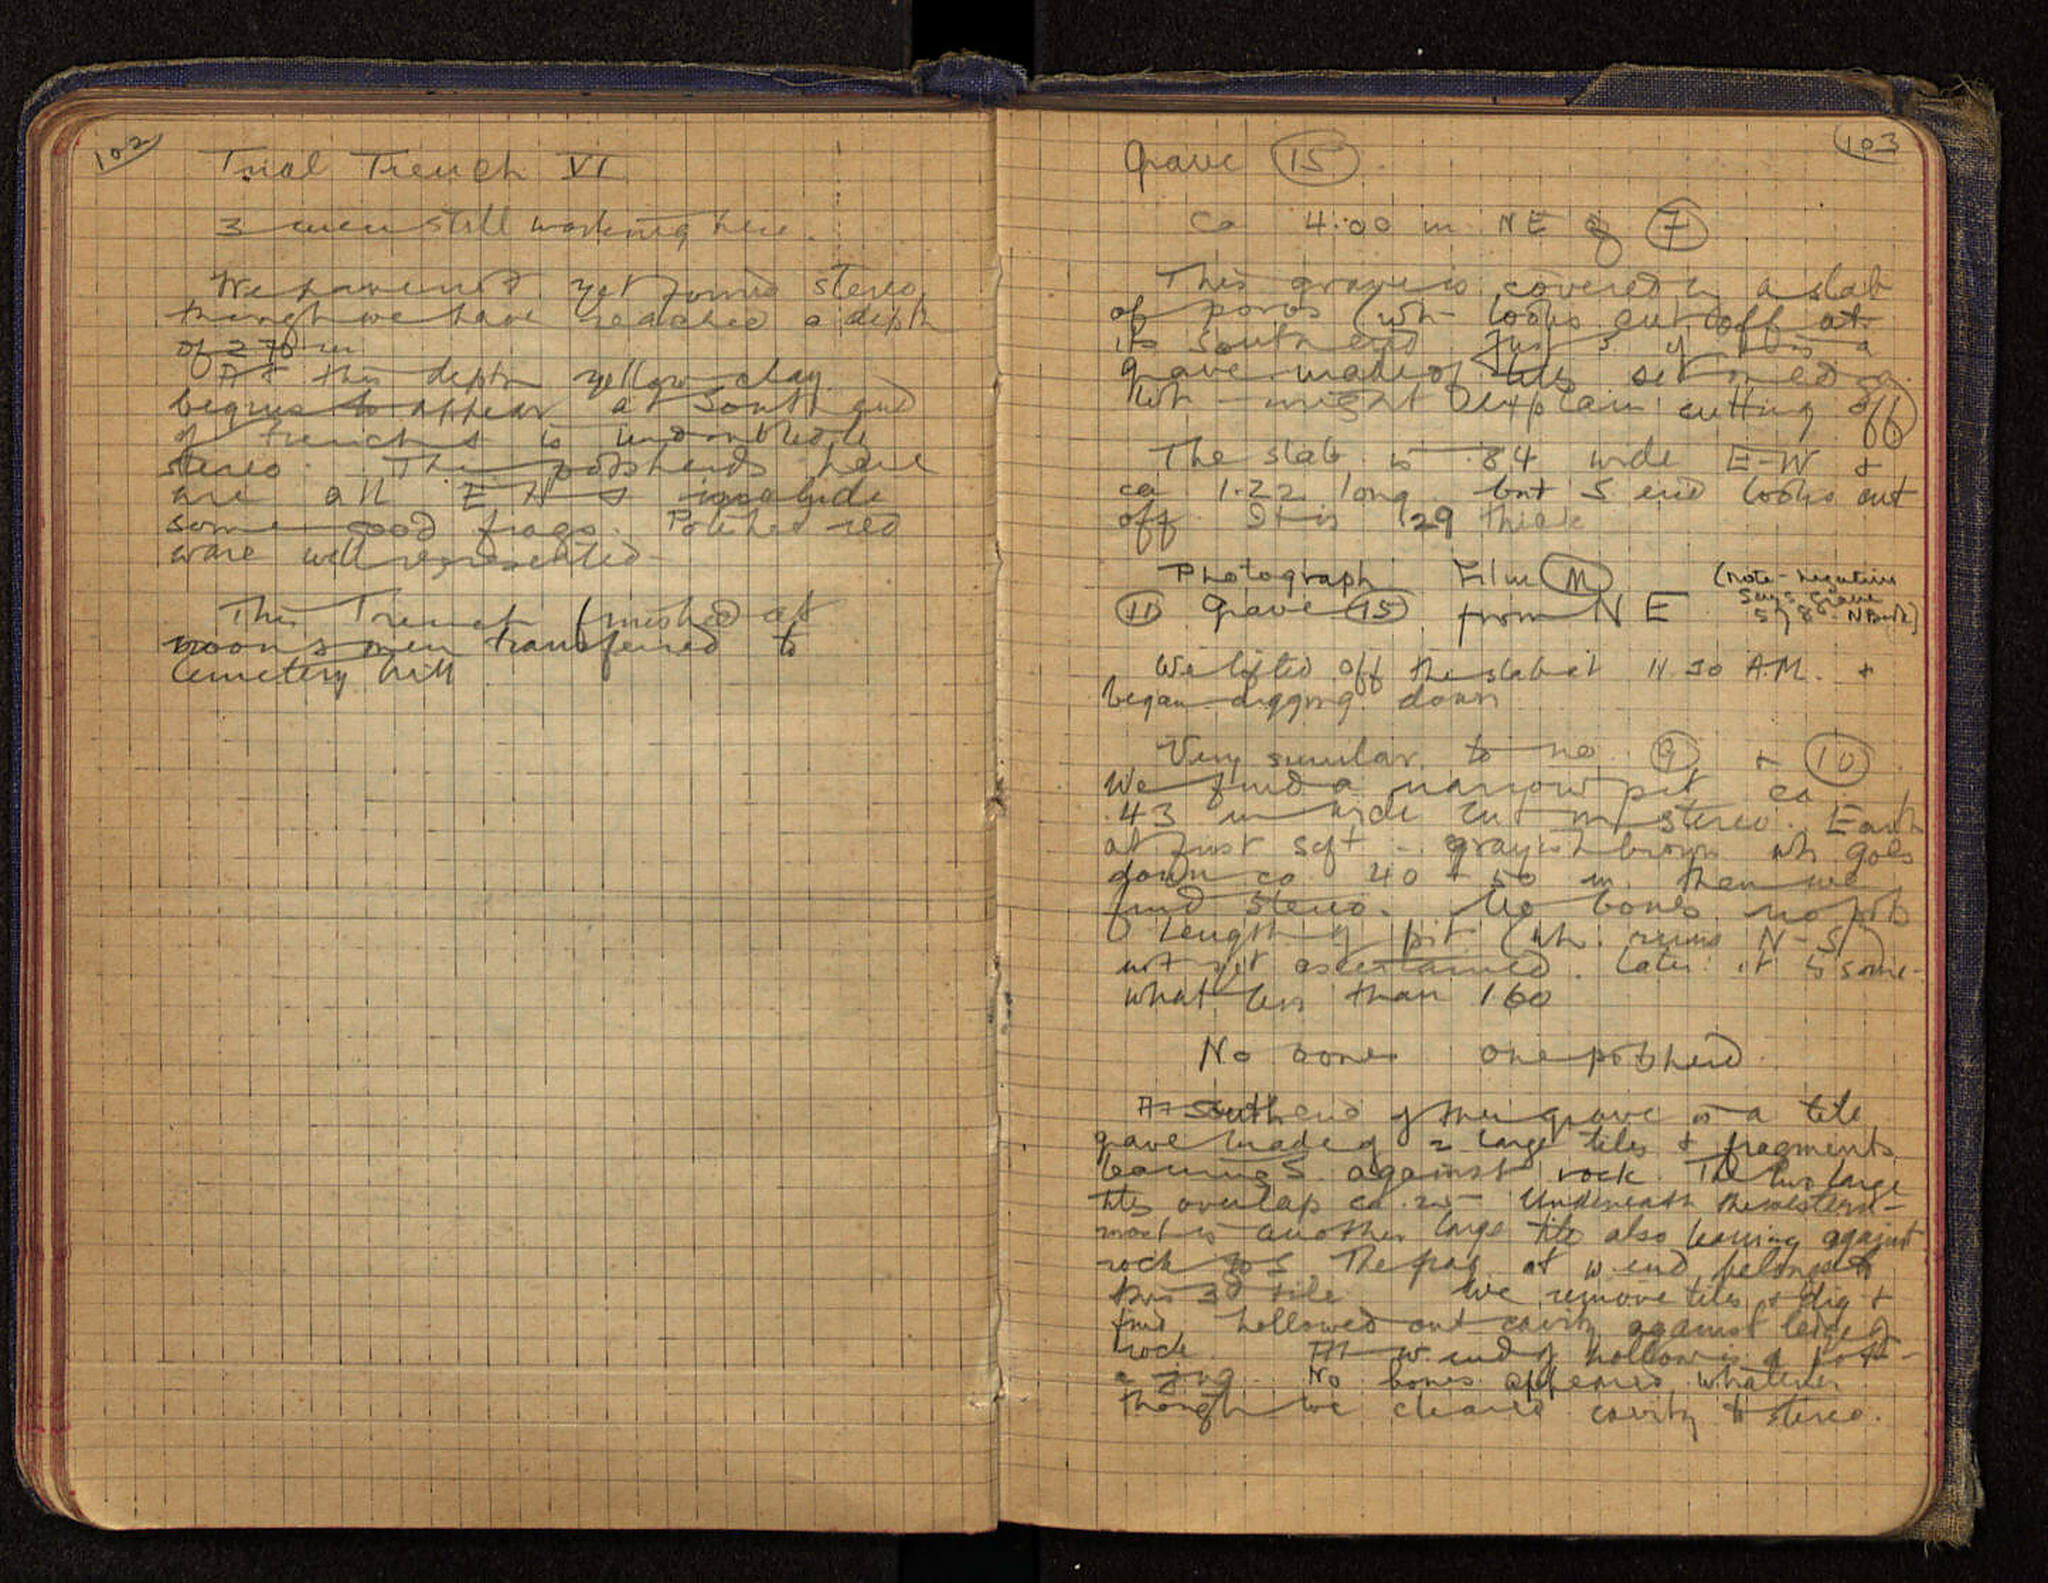 102
Trial Trench VI
3 men still working here.
We have not yet found stereo
though we have reached a depth
of 2.70 m
At this depth yellow clay
begins to appear at South end
of trench & is undoubtedly
stereo. The potsherds here
are all EH & include
some good frags. Polished red
ware well represented –
This Trench finished at
noon & men transferred to
Cemetery hill
103
Grave (15)
Ca 4.00 m NE of (7)
This grave is covered by a slab
of poros (wh looks cut off at
its south end. Just S. of this a
grave made of tiles
wh might explain cutting off)
The slab is .84 wide E-W &
ca 1.22 long but S end looks cut
off It is .29 thick
Photograph Film (M)
(11) Grave (15) from NE
(Note – negative
says grave
5 of 8 –
We lifted off the slab at 11.30 A.M. &
began digging down
Very similar to no (9) & (10)
We find a narrow pit ca
.43 m wide cut in stereo. Earth
at first soft – grayish brown wh goes
down ca 40 + 50 m. then we
find stereo. No bones no pots
Length of pit (wh. runs N-S)
not yet ascertained. Later: it is some-
what less than 160
No bones one potsherd
At South end of this grave is a tile
grave made of 2 large tiles & fragments
leaning S. against rock. The two large
tiles overlap ca. Underneath the western-
most is another large tile also leaning against
rock to S The frag. at w. end belongs to
this 3d tile We remove tiles & dig &
find hollowed out cavity against ledge of
rock At w. end of hollow is a pot –
a jug. No bones appeared whatever
though we cleared cavity to stereo.